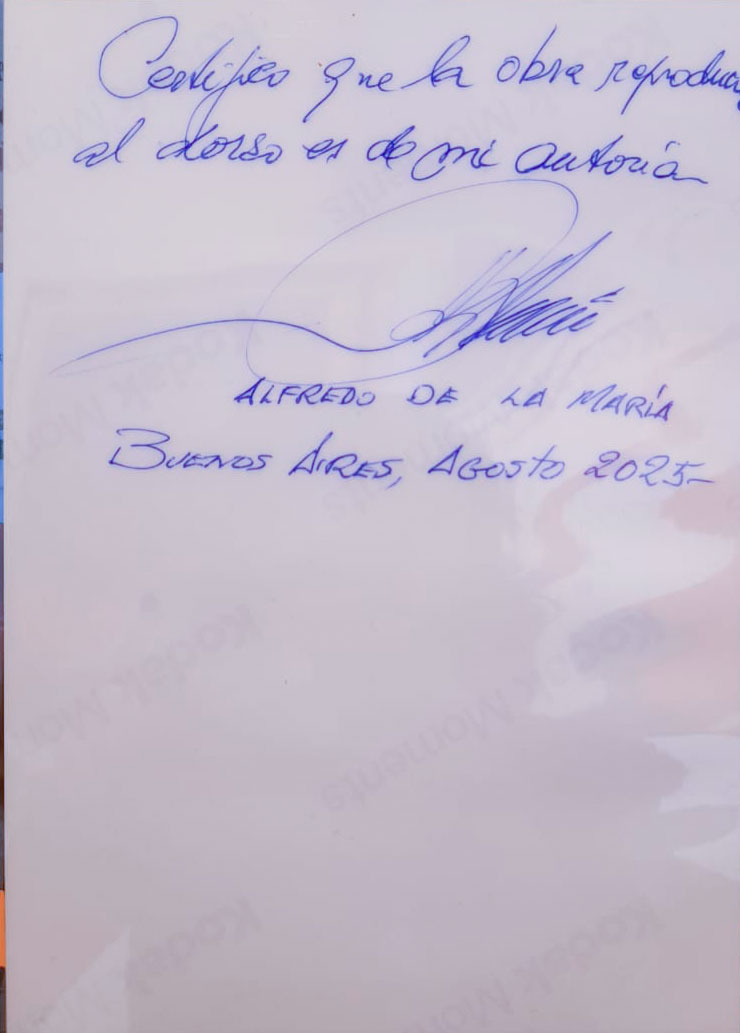 Certifico que la obra reproduci
al dorso es de mi autoría
ALFREDO DE LA MARÍA
BUENOS AIRES, AGOSTO 2025-
Kodak Moments
Kodak Moments
Kodak Moments
Kodak Moments